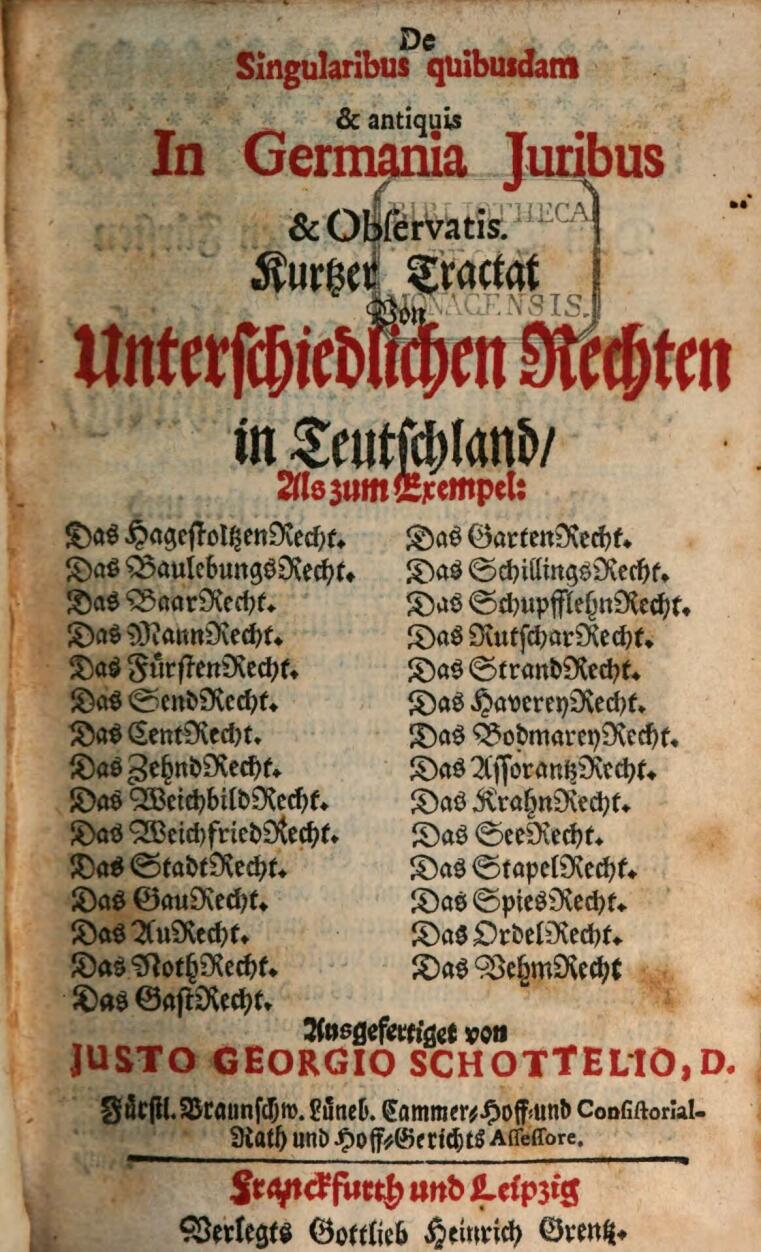 De
Singularibus quibusdam
& antiquis
In Germania Juribus
& Obſervatis.
BIBLIOTHECA
Kurtzer Tractat
MONACENSIS.
Von
Unterſchiedlichen Rechten
in Teutſchland/
Als zum Exempel:
Das HageſtoltzenRecht.
Das BaulebungsRecht.
Das BaarRecht.
Das MannRecht.
Das FürſtenRecht.
Das SendRecht.
Das CentRecht.
Das ZehndRecht.
Das WeichbildRecht.
Das WeichfriedRecht.
Das StadtRecht.
Das GauRecht.
Das AuRecht.
Das NothRecht.
Das GaſtRecht.
Das GartenRecht.
Das SchillingsRecht.
Das SchupfflehnRecht.
Das RutſcharRecht.
Das StrandRecht.
Das HavereyRecht.
Das BodmareyRecht.
Das AſſorantzRecht.
Das KrahnRecht.
Das SeeRecht.
Das StapelRecht.
Das SpiesRecht.
Das OrdelRecht.
Das VehmRecht
Ausgefertiget von
JUSTO GEORGIO SCHOTTELIO, D.
Fürſtl. Braunſchw. Lüneb. Cammer-Hoff-und Conſiſtorial-
Rath und Hoff-Gerichts Aſſeſſore.
Franckfurth und Leipzig
Verlegts Gottlieb Heinrich Grentz.